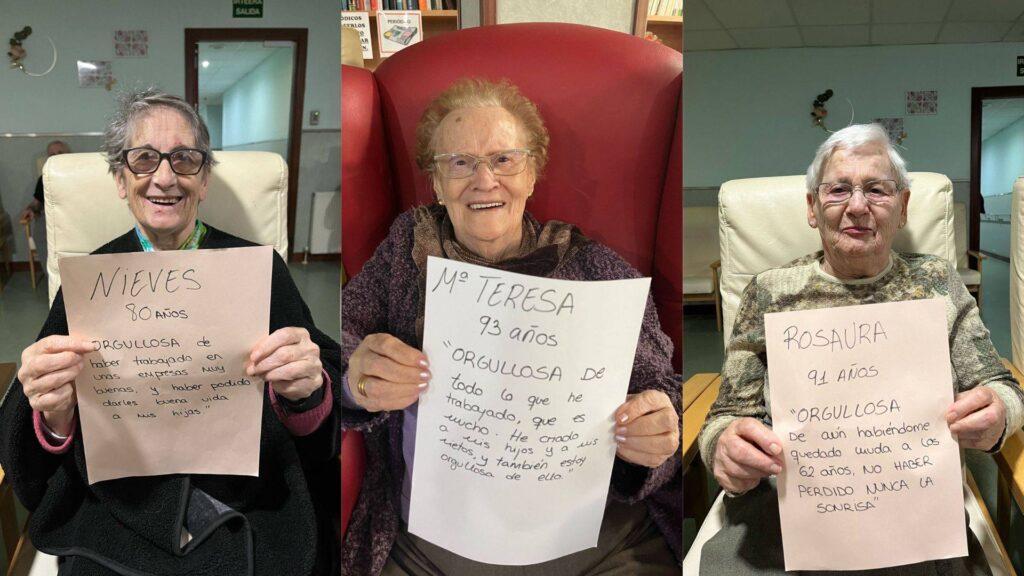 IRTEERA
SALIDA
NIEVES
80 AÑOS
ORGULLOSA de
haber trabajado en
unas empresas muy
buenas, y haber podido
darles buena vida
a sus hijas"
PERIÓDICO
Mª TERESA
93 años
"ORGULLOSA DE
todo lo que he
trabajado, que es
mucho. He criado
a mis hijos y a mis
nietos, y también estoy
orgullosa de ello."
ROSAURA
91 AÑOS
"ORGULLOSA
DE aún habiéndome
quedado viuda a los
62 años, NO HABER
PERDIDO NUNCA LA
SONRISA"